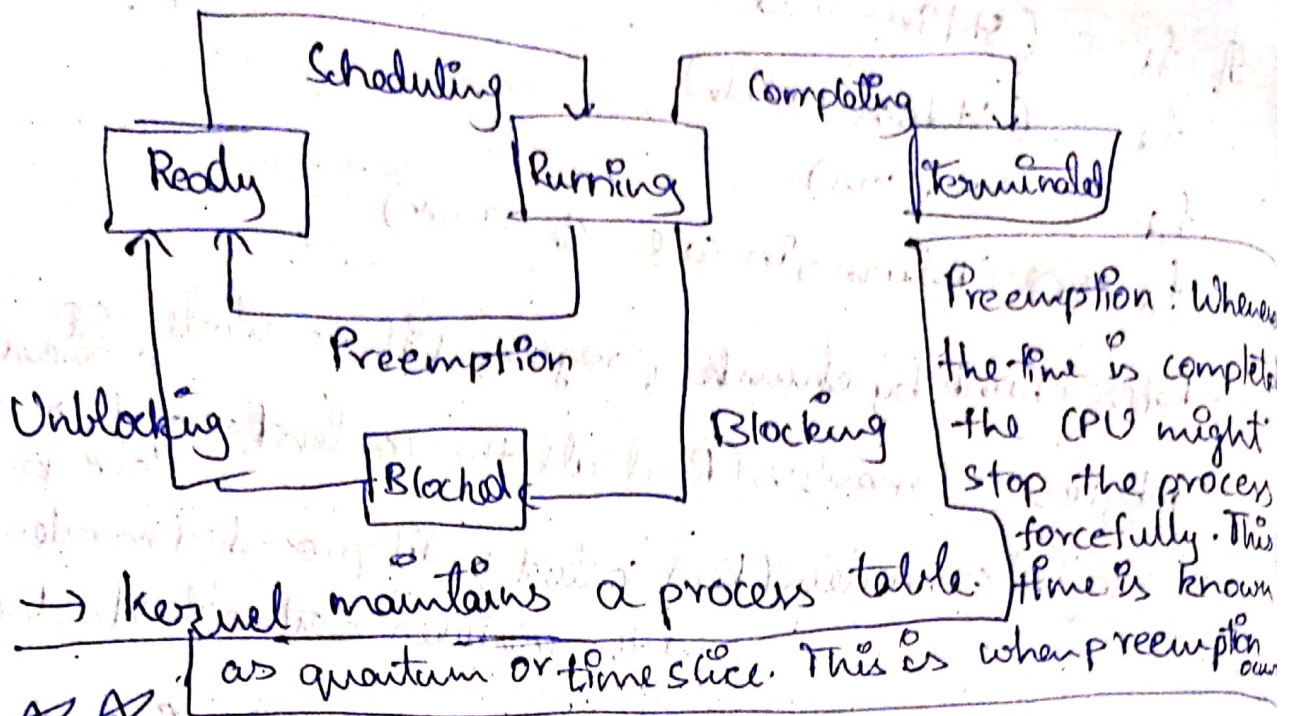 Scheduling
Completing
Ready
Running
Terminated
Preemption
Unblocking
Blocked
Blocking
Preemption : Whenever
the time is complete
the CPU might
stop the process
forcefully. This
time is known
as quantum or time slice. This is when preemption
→ Kernel maintains a process table.